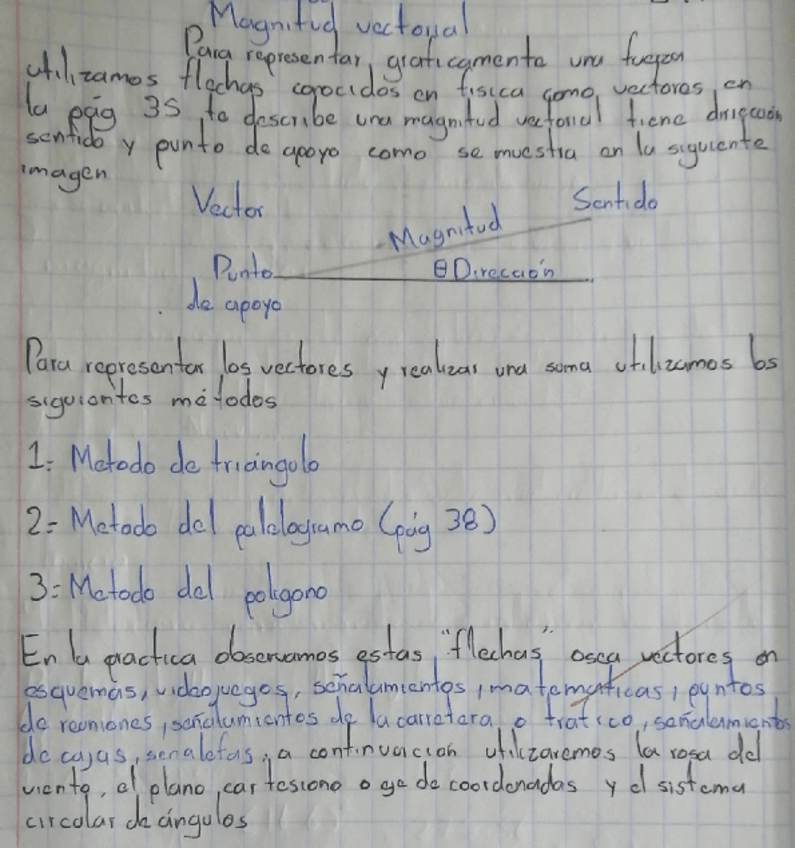 Magnitud vectorial
Para representar, graficamente una fuerza
utilizamos flechas conocidos en fisica como vectores, en
la pág 35 te describe una magnitud vectorial tiene dirección
sentido y punto de apoyo como se muestra en la siguiente
imagen
Vector
Sentido
Magnitud
Punto
θ Dirección
de apoyo
Para representar los vectores y realizar una soma utilizamos los
siguientes métodos
1: Metodo de triángolo
2= Metodo del palelogramo (pág 38)
3= Metodo del poligono
En la practica observamos estas "flechas" osea vectores en
esquemas, videojuegos, señalamientos, matematicas, puntos
de reuniones, señalamientos de la carretara o trafico, señalamientos
de cajas, senaletas, a continuación utilizaremos la rosa del
viento, el plano cartesiono o ge de coordenadas y el sistema
circolar de ángulos